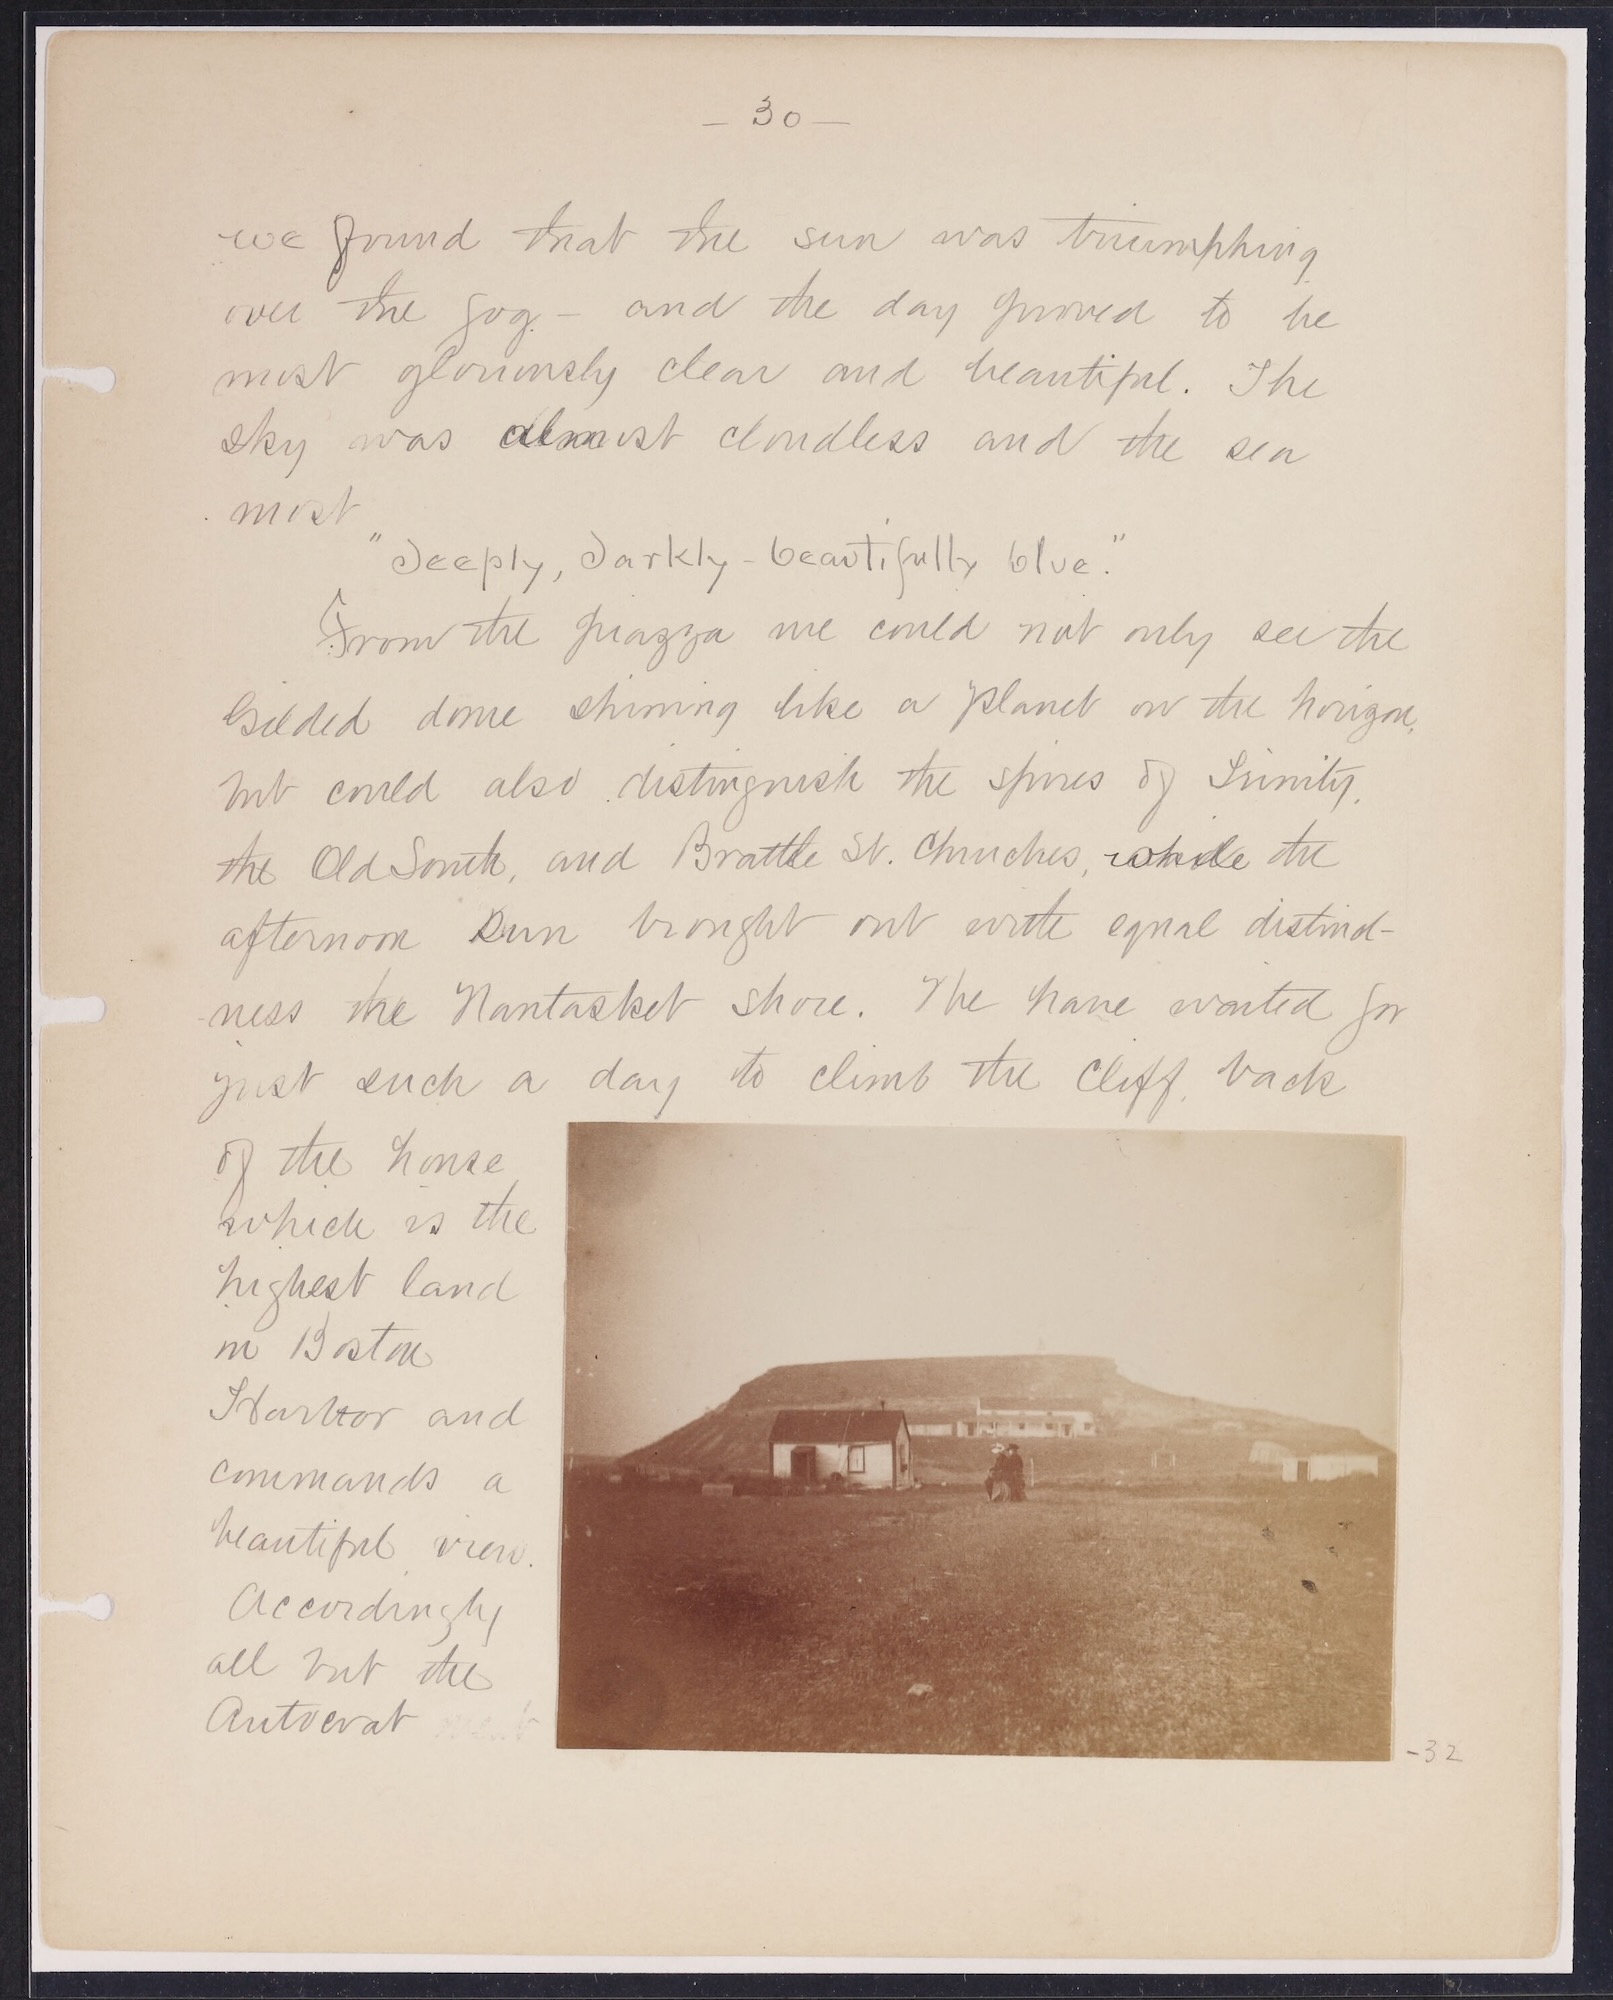 - 30 -
we found that the sun was triumphing
over the fog - and the day proved to be
most gloriously clear and beautiful. The
sky was almost cloudless and the sea
most
"deeply, darkly - beautifully blue."
From the piazza we could not only see the
Gilded dome shining like a planet on the horizon,
but could also distinguish the spires of Trinity,
the Old South, and Brattle St. Churches, while the
afternoon sun brought out with equal distinct-
ness the Nantasket shore. We have waited for
just such a day to climb the cliff, back
of the house
which is the
highest land
in Boston
Harbor and
commands a
beautiful view.
Accordingly
all but the
Autocrat
-32